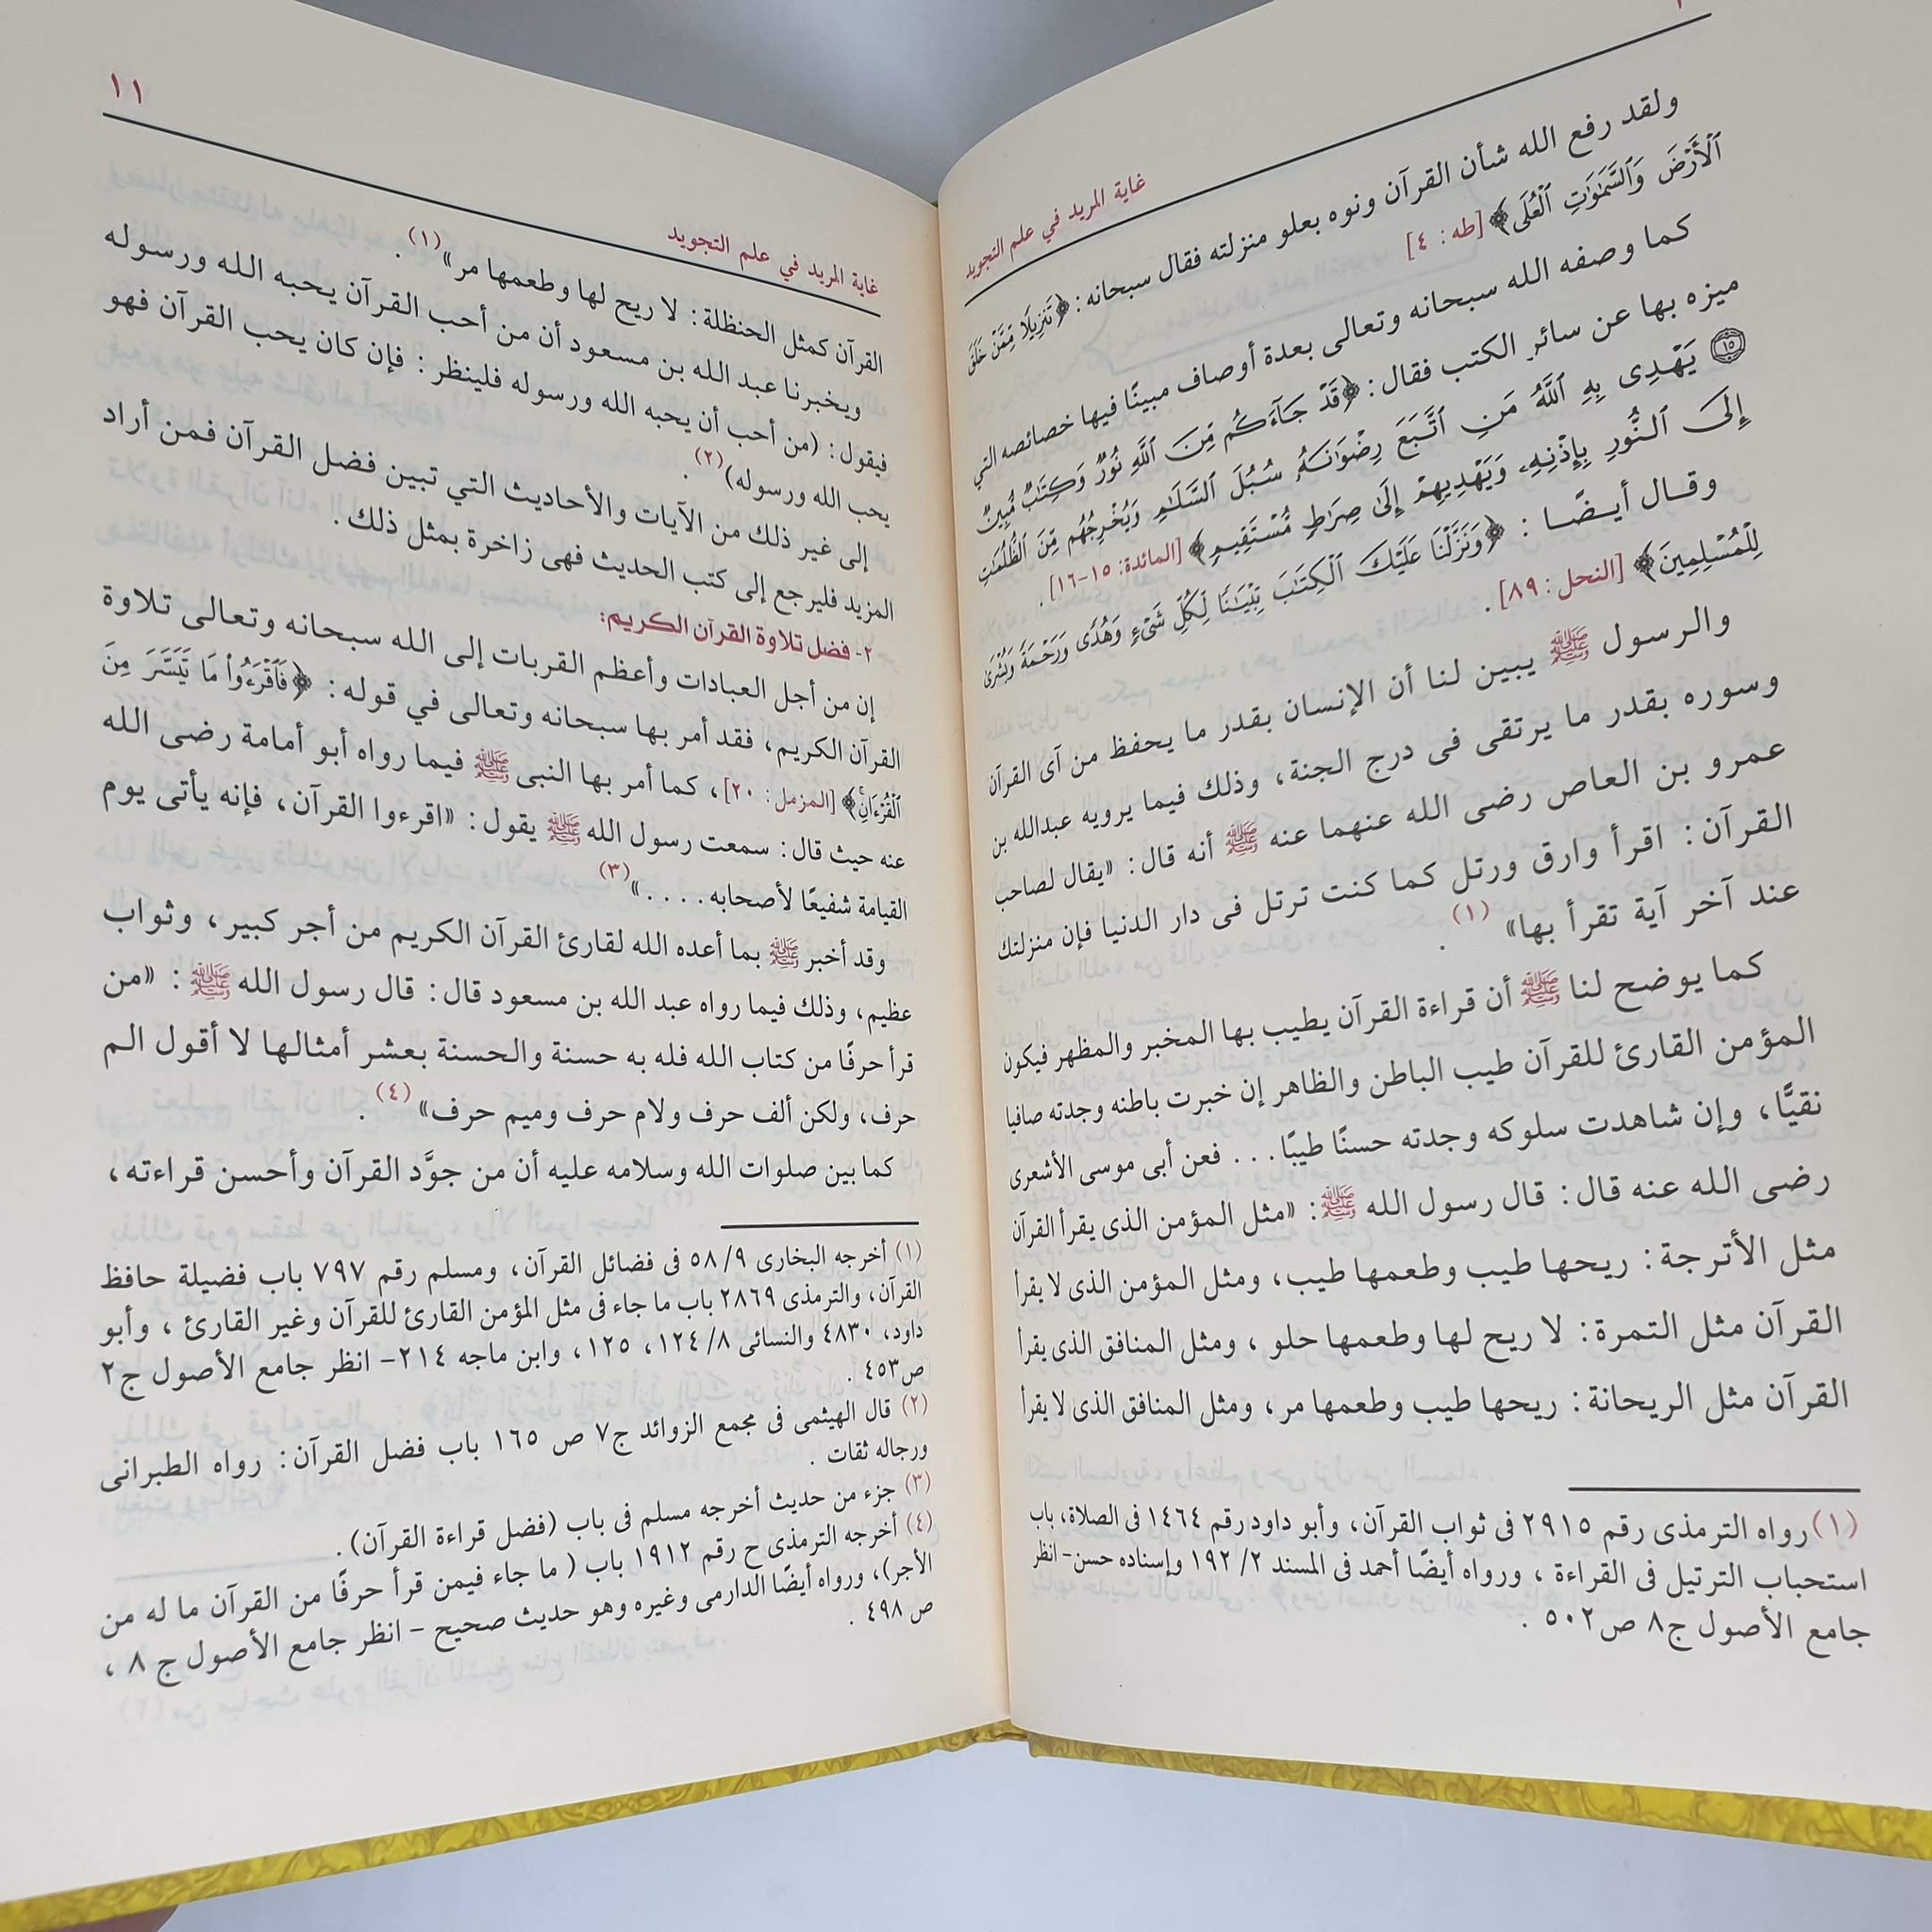 غاية المريد في علم التجويد
ولقد رفع الله شأن القرآن ونوه بعلو منزلته فقال سبحانه: ﴿تَنزِيلًا مِّمَّنْ خَلَقَ
ٱلْأَرْضَ وَٱلسَّمَٰوَٰتِ ٱلْعُلَى﴾ [طه: ٤]
كما وصفه الله سبحانه وتعالى بعدة أوصاف مبينًا فيها خصائصه التي
ميزه بها عن سائر الكتب فقال: ﴿قَدْ جَآءَكُم مِّنَ ٱللَّهِ نُورٌ وَكِتَٰبٌ مُّبِينٌ
١٥ يَهْدِى بِهِ ٱللَّهُ مَنِ ٱتَّبَعَ رِضْوَٰنَهُۥ سُبُلَ ٱلسَّلَٰمِ وَيُخْرِجُهُم مِّنَ ٱلظُّلُمَٰتِ
إِلَى ٱلنُّورِ بِإِذْنِهِۦ وَيَهْدِيهِمْ إِلَىٰ صِرَٰطٍ مُّسْتَقِيمٍ﴾ [المائدة: ١٥-١٦].
وقال أيضًا: ﴿وَنَزَّلْنَا عَلَيْكَ ٱلْكِتَٰبَ تِبْيَٰنًا لِّكُلِّ شَىْءٍ وَهُدًى وَرَحْمَةً وَبُشْرَىٰ
لِلْمُسْلِمِينَ﴾ [النحل: ٨٩].
والرسول ﷺ يبين لنا أن الإنسان بقدر ما يحفظ من آى القرآن
وسوره بقدر ما يرتقى فى درج الجنة، وذلك فيما يرويه عبدالله بن
عمرو بن العاص رضى الله عنهما عنه ﷺ أنه قال: «يقال لصاحب
القرآن: اقرأ وارق ورتل كما كنت ترتل فى دار الدنيا فإن منزلتك
عند آخر آية تقرأ بها» (١).
كما يوضح لنا ﷺ أن قراءة القرآن يطيب بها المخبر والمظهر فيكون
المؤمن القارئ للقرآن طيب الباطن والظاهر إن خبرت باطنه وجدته صافيا
نقيًّا، وإن شاهدت سلوكه وجدته حسنًا طيبًا... فعن أبى موسى الأشعرى
رضى الله عنه قال: قال رسول الله ﷺ: «مثل المؤمن الذى يقرأ القرآن
مثل الأترجة: ريحها طيب وطعمها طيب، ومثل المؤمن الذى لا يقرأ
القرآن مثل التمرة: لا ريح لها وطعمها حلو، ومثل المنافق الذى يقرأ
القرآن مثل الريحانة: ريحها طيب وطعمها مر، ومثل المنافق الذى لا يقرأ
(١) رواه الترمذى رقم ٢٩١٥ فى ثواب القرآن، وأبو داود رقم ١٤٦٤ فى الصلاة، باب
استحباب الترتيل فى القراءة، ورواه أيضًا أحمد فى المسند ٢/ ١٩٢ وإسناده حسن- انظر
جامع الأصول ج٨ ص٥٠٢.
١١
غاية المريد في علم التجويد
القرآن كمثل الحنظلة: لا ريح لها وطعمها مر» (١).
ويخبرنا عبد الله بن مسعود أن من أحب القرآن يحبه الله ورسوله
فيقول: (من أحب أن يحبه الله ورسوله فلينظر: فإن كان يحب القرآن فهو
يحب الله ورسوله) (٢).
إلى غير ذلك من الآيات والأحاديث التي تبين فضل القرآن فمن أراد
المزيد فليرجع إلى كتب الحديث فهى زاخرة بمثل ذلك.
٢- فضل تلاوة القرآن الكريم:
إن من أجل العبادات وأعظم القربات إلى الله سبحانه وتعالى تلاوة
القرآن الكريم، فقد أمر بها سبحانه وتعالى في قوله: ﴿فَٱقْرَءُوا۟ مَا تَيَسَّرَ مِنَ
ٱلْقُرْءَانِ﴾ [المزمل: ٢٠]، كما أمر بها النبى ﷺ فيما رواه أبو أمامة رضى الله
عنه حيث قال: سمعت رسول الله ﷺ يقول: «اقرءوا القرآن، فإنه يأتى يوم
القيامة شفيعًا لأصحابه....» (٣)
وقد أخبر ﷺ بما أعده الله لقارئ القرآن الكريم من أجر كبير، وثواب
عظيم، وذلك فيما رواه عبد الله بن مسعود قال: قال رسول الله ﷺ: «من
قرأ حرفًا من كتاب الله فله به حسنة والحسنة بعشر أمثالها لا أقول الم
حرف، ولكن ألف حرف ولام حرف وميم حرف» (٤).
كما بين صلوات الله وسلامه عليه أن من جوَّد القرآن وأحسن قراءته،
(١) أخرجه البخارى ٩/ ٥٨ فى فضائل القرآن، ومسلم رقم ٧٩٧ باب فضيلة حافظ
القرآن، والترمذى ٢٨٦٩ باب ما جاء فى مثل المؤمن القارئ للقرآن وغير القارئ، وأبو
داود، ٤٨٣٠ والنسائى ٨/ ١٢٤، ١٢٥، وابن ماجه ٢١٤- انظر جامع الأصول ج٢
ص٤٥٣.
(٢) قال الهيثمى فى مجمع الزوائد ج٧ ص ١٦٥ باب فضل القرآن: رواه الطبرانى
ورجاله ثقات.
(٣) جزء من حديث أخرجه مسلم فى باب (فضل قراءة القرآن).
(٤) أخرجه الترمذى ح رقم ١٩١٢ باب ( ما جاء فيمن قرأ حرفًا من القرآن ما له من
الأجر)، ورواه أيضًا الدارمى وغيره وهو حديث صحيح - انظر جامع الأصول ج ٨،
ص ٤٩٨.